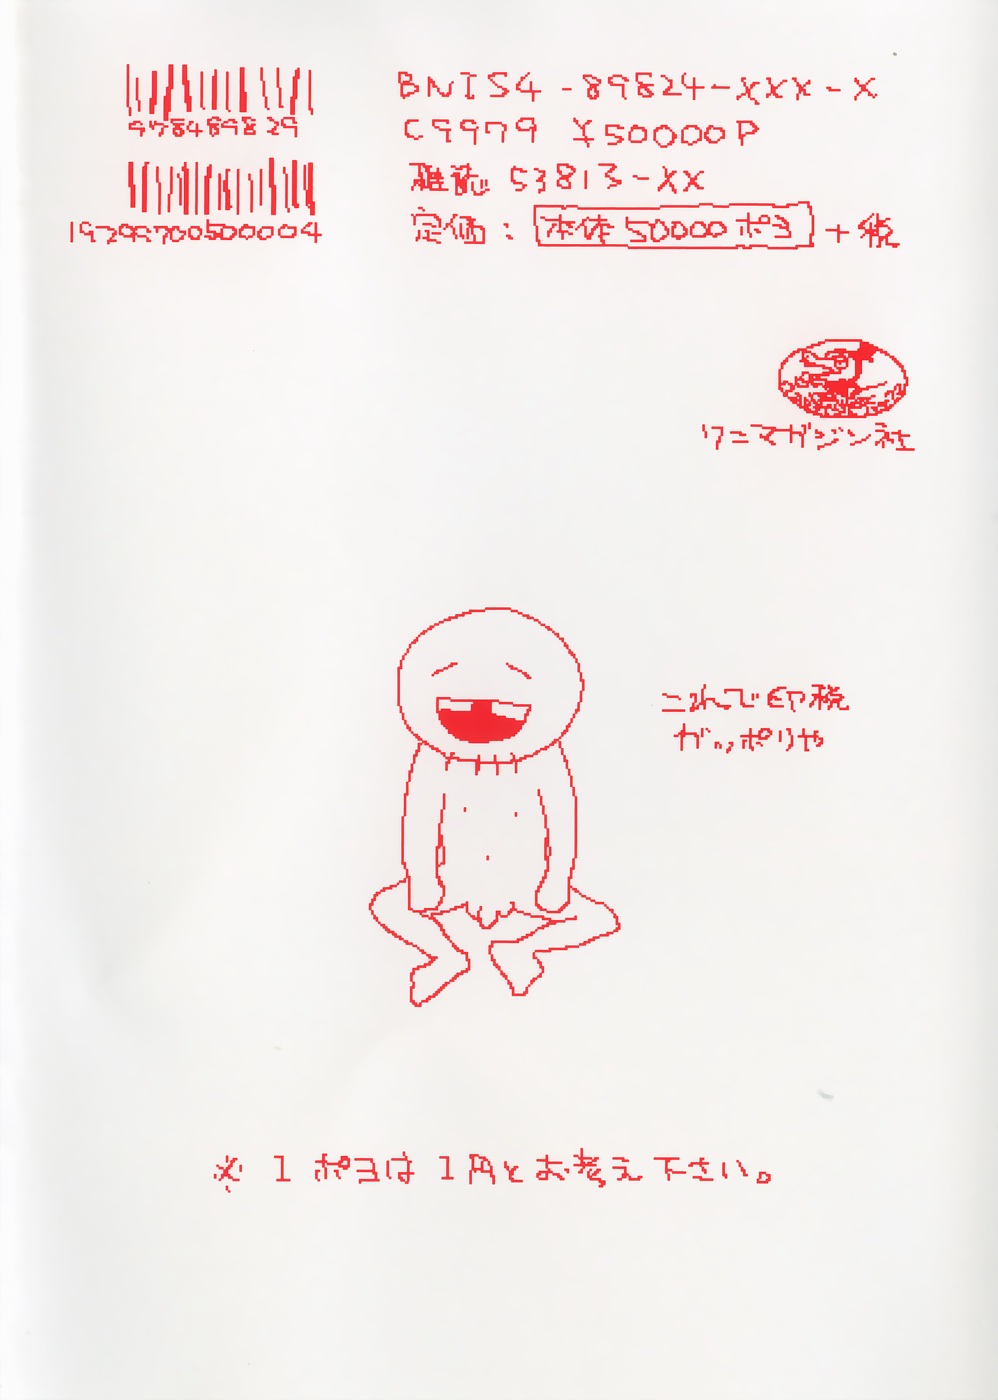 9784898 29
BNIS4-89824-XXX-X
C9979 ¥50000P
雑誌 53813-XX
192997900500004
定価:本体50000ポヨ+税
ワニマガジン社
これで印税
ガッポリや
※ 1ポヨは1円とお考え下さい。